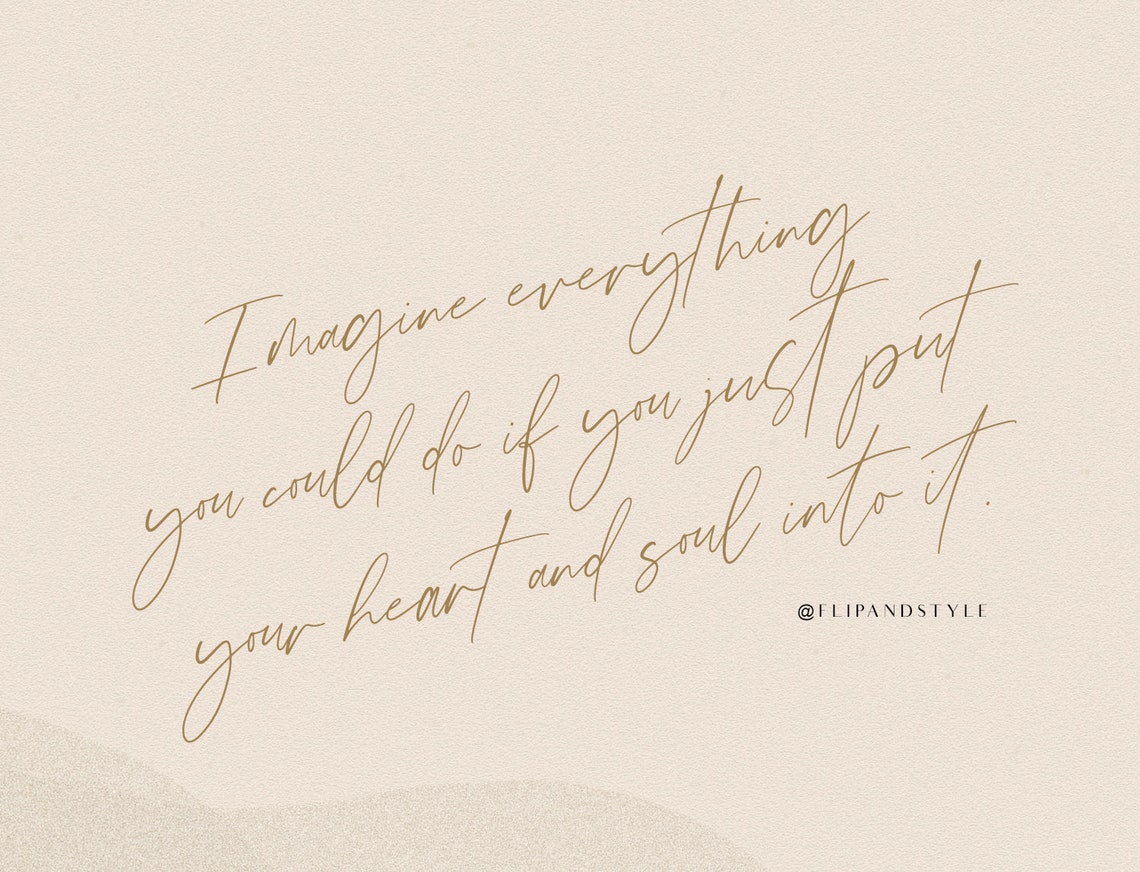 Imagine everything
you could do if you just put
your heart and soul into it.
@FLIPANDSTYLE